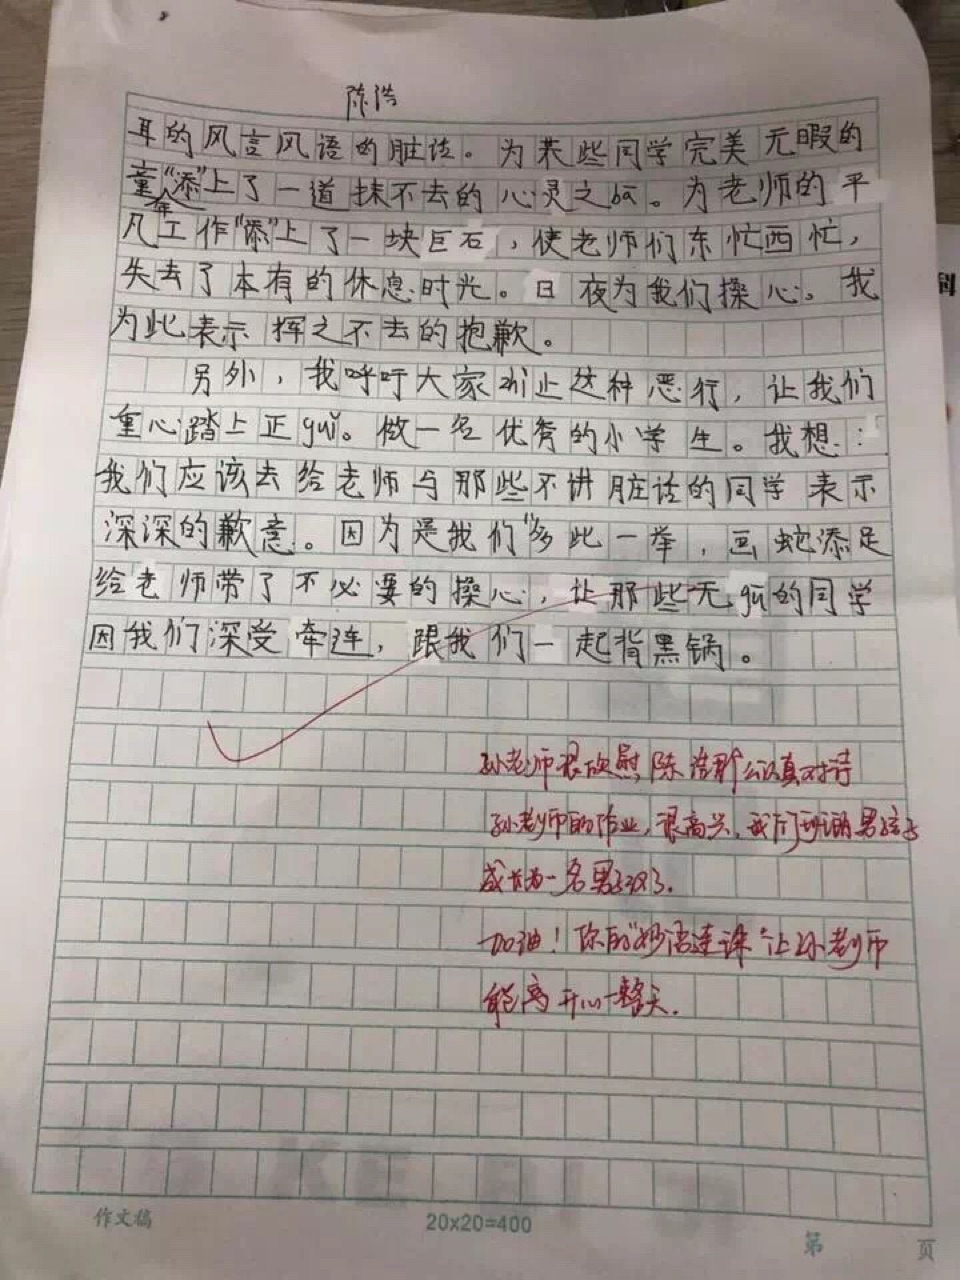 陈浩
耳的风言风语的脏话。为某些同学完美无暇的
童年"添"上了一道抹不去的心灵之ba。为老师的平
凡工作"添"上了一块巨石，使老师们东忙西忙，
失去了本有的休息时光。日夜为我们操心。我
为此表示挥之不去的抱歉。
另外，我呼吁大家zhi止这种恶行，让我们
重心踏上正guǐ。做一名优秀的小学生。我想：
我们应该去给老师与那些不讲脏话的同学表示
深深的歉意。因为是我们"多此一举，画蛇添足
给老师带了不必要的操心，让那些无gū的同学
因我们深受牵连，跟我们一起背黑锅。
孙老师很欣慰陈浩认真对待
孙老师的作业，很高兴，我们班的男孩子
成长为一名男子汉了.
加油！你的"妙语连珠"让孙老师
能高开心一整天.
作文稿
20x20=400
第 页